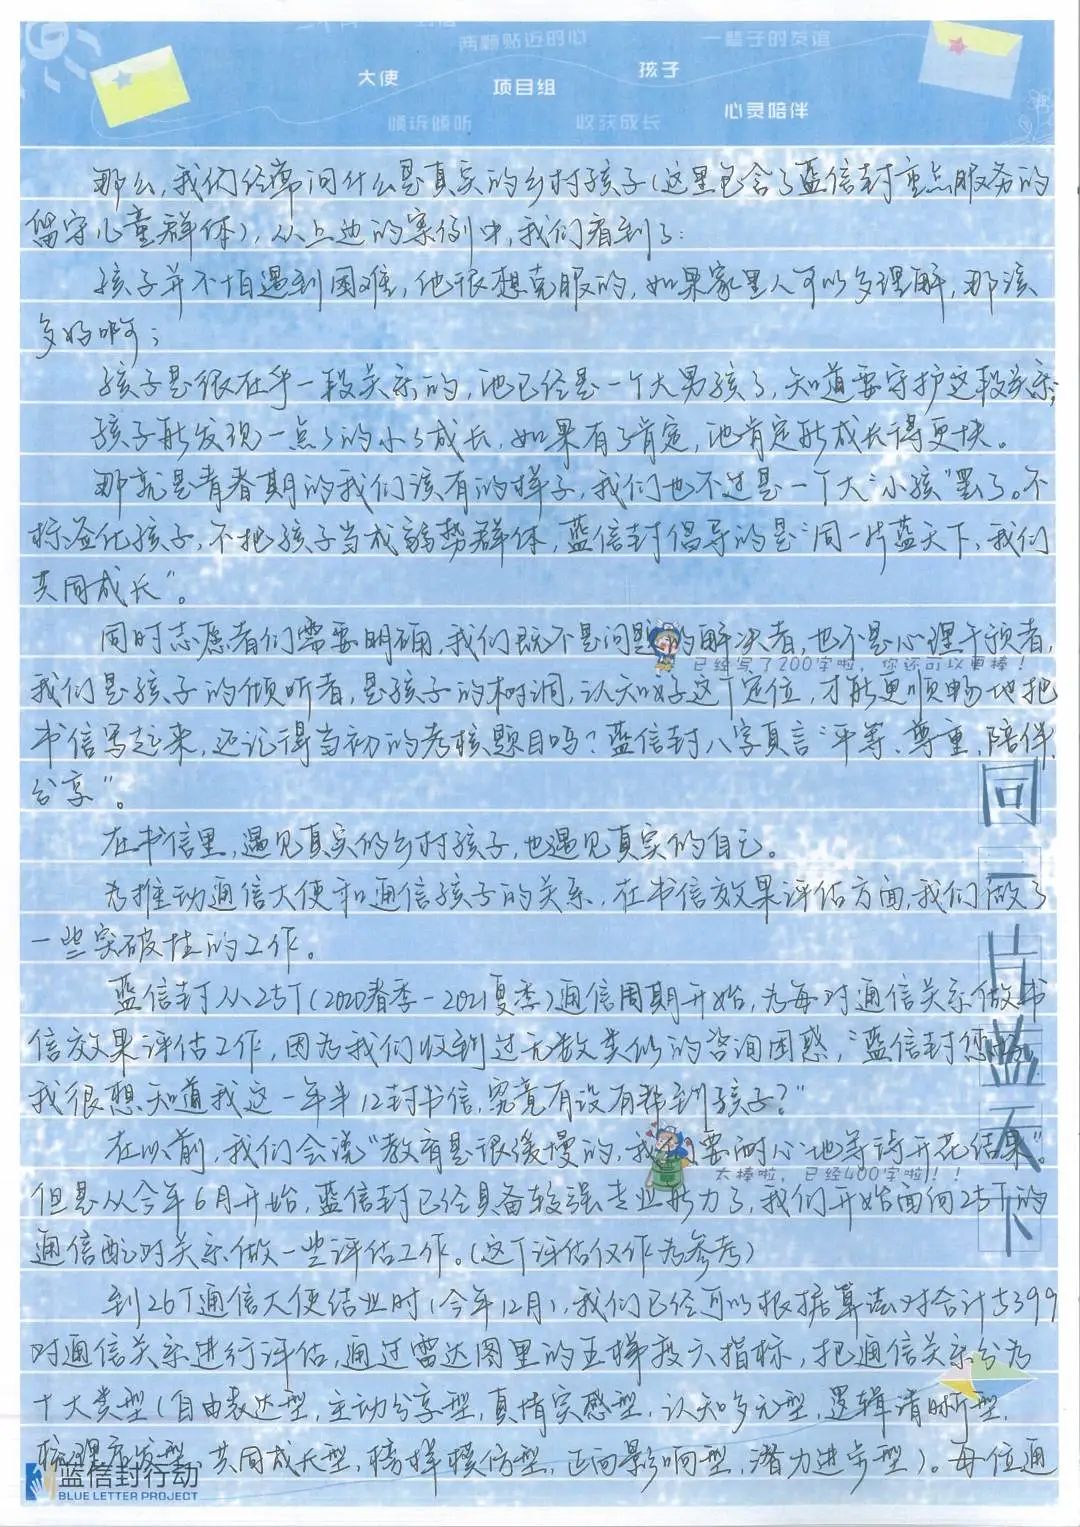 两颗贴近的心 一辈子的友谊
大使 项目组 孩子
倾诉倾听 收获成长 心灵陪伴
那么,我们经常问什么是真实的乡村孩子(这里包含了蓝信封重点服务的
留守儿童群体),从上边的案例中,我们看到了:
孩子并不怕遇到困难,他很想克服的,如果家里人可以多理解,那该
多好啊;
孩子是很在乎一段关系的,他已经是一个大男孩了,知道要守护这段关系;
孩子能发现一点々的小々成长,如果有了肯定,他肯定能成长得更快。
那就是青春期的我们该有的样子,我们也不过是一个大“小孩”罢了。不
标签化孩子,不把孩子当成弱势群体,蓝信封倡导的是“同一片蓝天下,我们
共同成长”。
同时志愿者们需要明确,我们既不是问题的解决者,也不是心理干预者,
已经写了200字啦,你还可以更棒!
我们是孩子的倾听者,是孩子的树洞,认知好这个定位,才能更顺畅地把
书信写起来,还记得当初的考核题目吗?蓝信封八字真言“平等、尊重、陪伴、
分享”。
在书信里,遇见真实的乡村孩子,也遇见真实的自己。
为推动通信大使和通信孩子的关系,在书信效果评估方面,我们做了
一些突破性的工作。
蓝信封从25T(2020春季-2021夏季)通信周期开始,为每对通信关系做书
信效果评估工作,因为我们收到过无数类似的咨询困惑,“蓝信封您
我很想知道我这一年半12封书信,究竟有没有帮到孩子?”
在以前,我们会说“教育是很缓慢的,我 要耐心地等待开花结果”
太棒啦,已经400字啦!!
但是从今年6月开始,蓝信封已经具备较强专业能力了,我们开始面向25T的
通信配对关系做一些评估工作。(这个评估仅作为参考)
到26T通信大使结业时(今年12月),我们已经可以根据算法对合计5399
对通信关系进行评估,通过雷达图里的五梯度六指标,把通信关系分为
十大类型(自由表达型,主动分享型,真情实感型,认知多元型,逻辑清晰型,
梳理启发型,共同成长型,榜样模仿型,正向影响型,潜力进步型)。每位通
同一片蓝天下
蓝信封行动
BLUE LETTER PROJECT